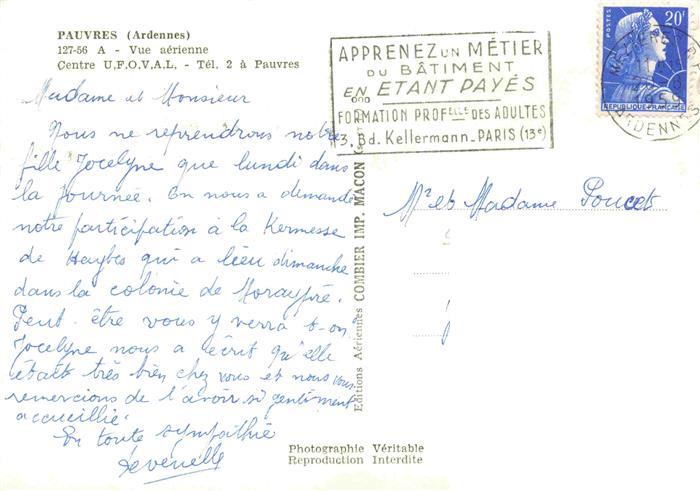 PAUVRES (Ardennes)
127-56 A - Vue aérienne
Centre U.F.O.V.A.L. - Tél. 2 à Pauvres
Madame et Monsieur
Nous ne reprendrons notre
fille Jocelyne que lundi dans
la journée. On nous a demandé
notre participation à la Kermesse
de Haybes qui a lieu dimanche
dans la colonie de Moraypré.
Peut-être vous y verra-t-on?
Jocelyne nous a écrit qu'elle
était très bien chez vous et nous vous
remercions de l'avoir si gentiment
accueillie.
En toute sympathie
Editions Aériennes COMBIER IMP. MACON
APPRENEZ UN MÉTIER
DU BÂTIMENT
EN ETANT PAYÉS
FORMATION PROFELLE DES ADULTES
3, Bd. Kellermann - PARIS (13e)
POSTES
20F
REPUBLIQUE FRANÇAISE
ARDENNES
Mr et Madame Poucet
Photographie Véritable
Reproduction Interdite